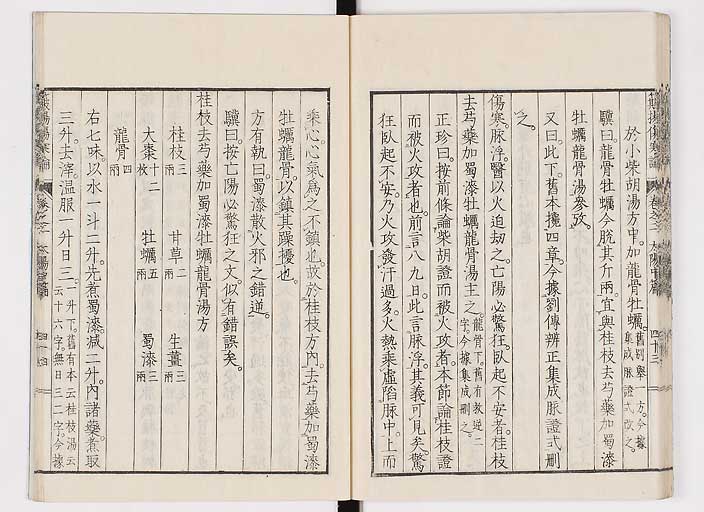 於小柴胡湯方中加龍骨牡蠣舊別舉一方今據集成脈證式改之
驥曰龍骨牡蠣今脫其斤兩宜與桂枝去芍藥加蜀漆
牡蠣龍骨湯參攷
又曰此下舊本攙四章今據劉傳辨正集成脈證式刪
之
傷寒脈浮醫以火迫劫之亡陽必驚狂臥起不安者桂枝
去芍藥加蜀漆牡蠣龍骨湯主之龍骨下舊有救逆二字今據集成刪之
正珍曰按前條論柴胡證而被火攻者本節論桂枝證
而被火攻者也前言八九日此言脈浮其義可見矣驚
狂臥起不安乃火攻發汗過多火熱乘虛陷脈中上而
乘心心氣爲之不鎮也故於桂枝方內去芍藥加蜀漆
牡蠣龍骨以鎮其躁擾也
方有執曰蜀漆散火邪之錯逆
驥曰按亡陽必驚狂之文似有錯誤矣
桂枝去芍藥加蜀漆牡蠣龍骨湯方
桂枝三兩 甘草二兩 生薑三兩
大棗十二枚 牡蠣五兩 蜀漆三兩
龍骨四兩
右七味以水一斗二升先煮蜀漆減二升內諸藥煮取
三升去滓溫服一升日三一升下舊有本云桂枝湯云云十六字無日三二字今據